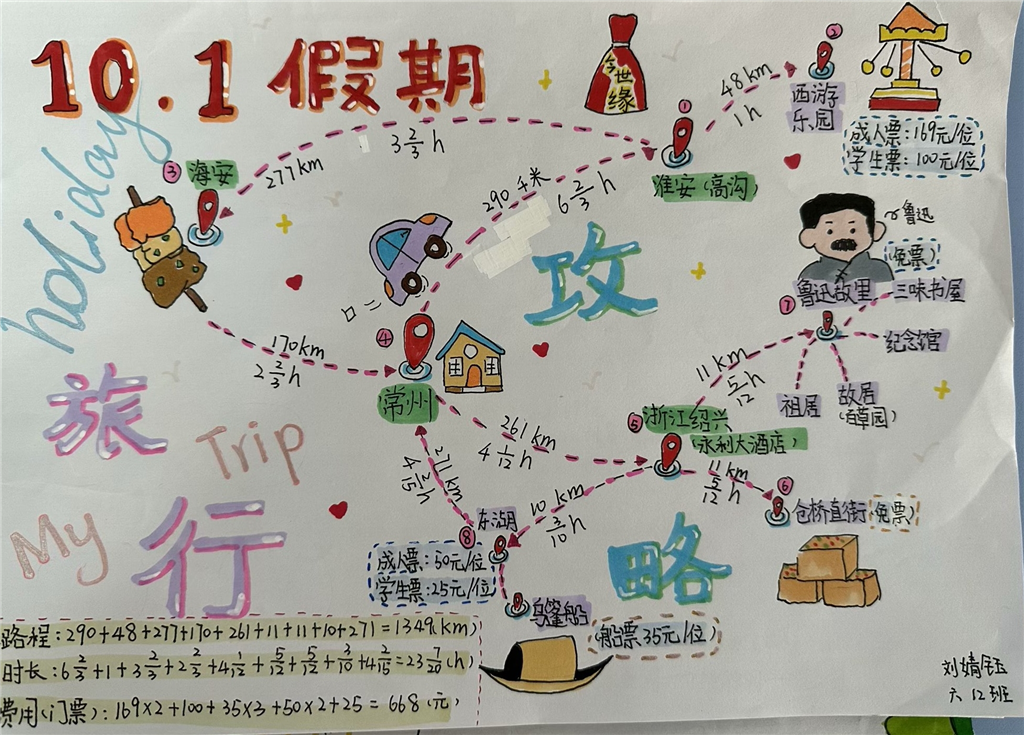 10.1假期
holiday
今世缘
②
西游
乐园
成人票:169元/位
学生票:100元/位
48km
1h
①
淮安(高沟)
3 2/3 h
277km
③
海安
290千米
6 2/3 h
攻
~鲁迅
(免票)
鲁迅故里
三味书屋
⑦
纪念馆
祖居
故居
170km
2 2/3 h
④
常州
旅
Trip
My
行
261km
4 1/12 h
11km
5/12 h
⑤
浙江绍兴
(永利大酒店)
11km
5/12 h
⑥
仓桥直街(免票)
271km
4 2/15 h
10km
3/10 h
东湖
⑧
成人票:50元/位
学生票:25元/位
略
乌篷船
(船票35元/位)
路程:290+48+277+170+261+11+11+10+271=1349(km)
时长:6 2/3+1+3 2/3+2 2/3+4 1/12+5/12+5/12+3/10+4 2/15=23 7/20(h)
费用(门票):169×2+100+35×3+50×2+25=668(元)
六12班